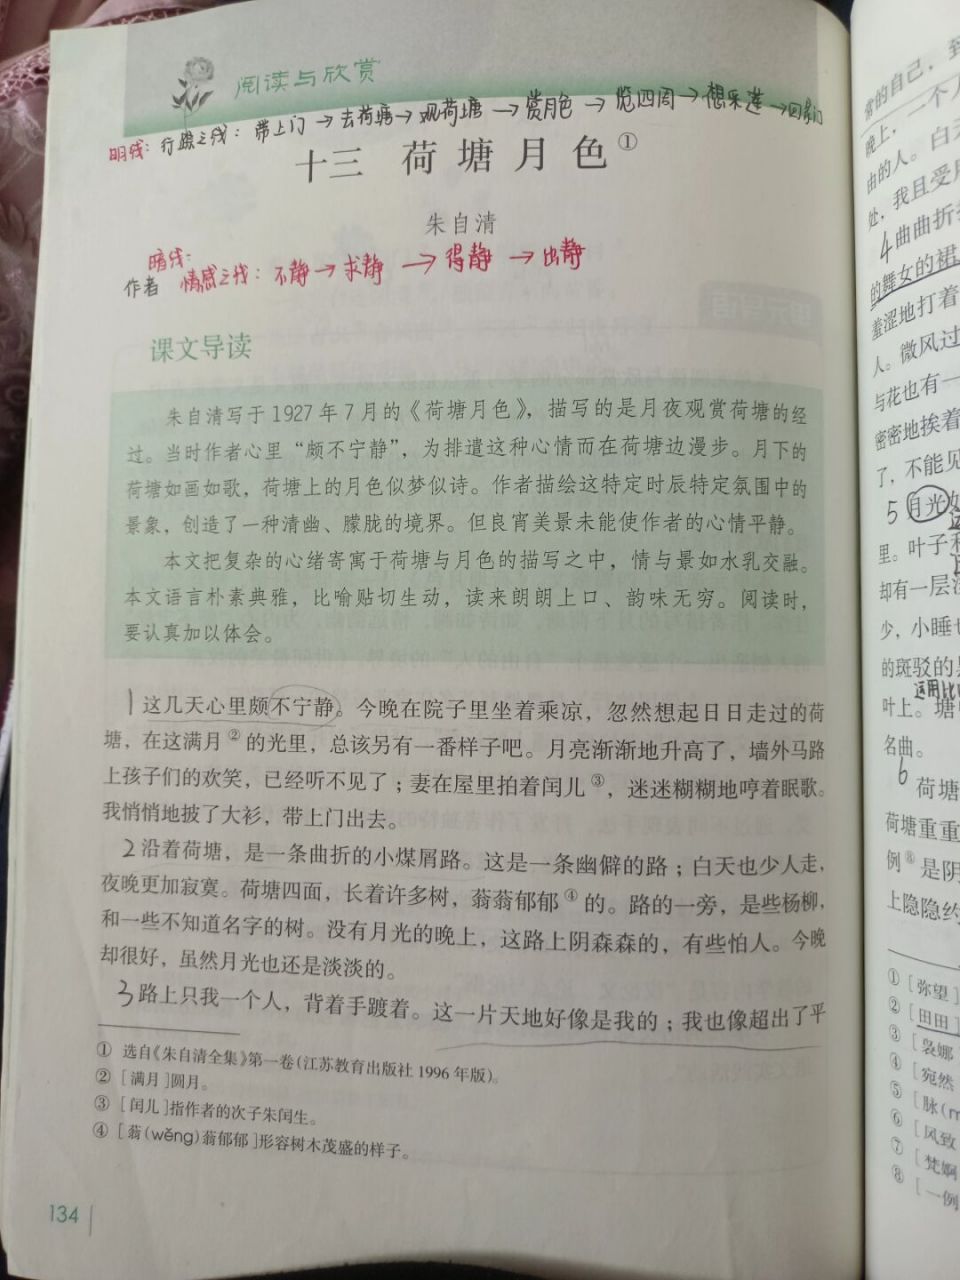 阅读与欣赏
明线：行踪之线：带上门→去荷塘→观荷塘→赏月色→览四周→想采莲→回家门
十三 荷塘月色①
朱自清
暗线：
作者 情感之线：不静→求静→得静→出静
课文导读
朱自清写于1927年7月的《荷塘月色》，描写的是月夜观赏荷塘的经
过。当时作者心里“颇不宁静”，为排遣这种心情而在荷塘边漫步。月下的
荷塘如画如歌，荷塘上的月色似梦似诗。作者描绘这特定时辰特定氛围中的
景象，创造了一种清幽、朦胧的境界。但良宵美景未能使作者的心情平静。
本文把复杂的心绪寄寓于荷塘与月色的描写之中，情与景如水乳交融。
本文语言朴素典雅，比喻贴切生动，读来朗朗上口、韵味无穷。阅读时，
要认真加以体会。
1这几天心里颇不宁静。今晚在院子里坐着乘凉，忽然想起日日走过的荷
塘，在这满月②的光里，总该另有一番样子吧。月亮渐渐地升高了，墙外马路
上孩子们的欢笑，已经听不见了；妻在屋里拍着闰儿③，迷迷糊糊地哼着眠歌。
我悄悄地披了大衫，带上门出去。
2沿着荷塘，是一条曲折的小煤屑路。这是一条幽僻的路；白天也少人走，
夜晚更加寂寞。荷塘四面，长着许多树，蓊蓊郁郁④的。路的一旁，是些杨柳，
和一些不知道名字的树。没有月光的晚上，这路上阴森森的，有些怕人。今晚
却很好，虽然月光也还是淡淡的。
3路上只我一个人，背着手踱着。这一片天地好像是我的；我也像超出了平
① 选自《朱自清全集》第一卷(江苏教育出版社1996年版)。
② [满月]圆月。
③ [闰儿]指作者的次子朱闰生。
④ [蓊(wěng)蓊郁郁]形容树木茂盛的样子。
134
常的自己，到
晚上，一个人
由的人。白天
处，我且受用
4曲曲折折
的舞女的裙
羞涩地打着
人。微风过
与花也有一
密密地挨着
了，不能见
5月光如
里。叶子和
却有一层淡
少，小睡也
的斑驳的黑
运用比
叶上。塘中
名曲。
6荷塘
荷塘重重
例⑧是阴
上隐隐约
① [弥望]
② [田田]
③ [袅娜
④ [宛然
⑤ [脉(m
⑥ [风致
⑦ [梵婀
⑧ [一例